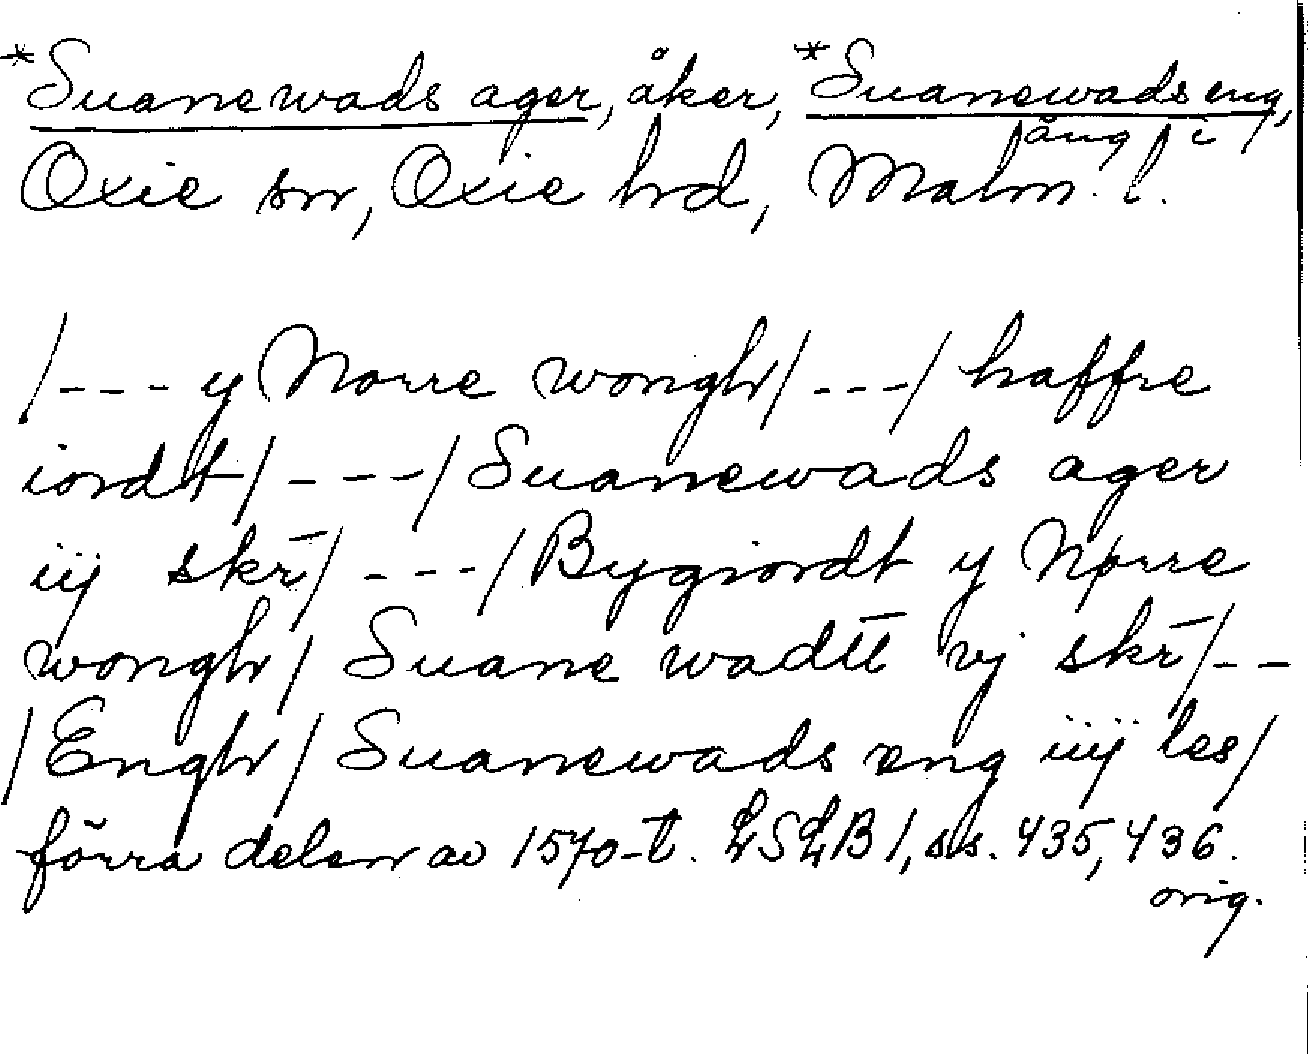 *Suanewads ager, åker, *Suanewads eng,
äng i
Oxie sn, Oxie hd, Malm. l.
/--- y Norre wongh/---/ haffre
iordt/---/ Suanewads ager
iij skr̄/---/ Bygiordt y Nørre
wongh/ Suane wadtt vj skr̄/--
/Engh/ Suanewads eng iiij les/
förra delen av 1570-t. LSLB 1, ss. 435, 436.
orig.